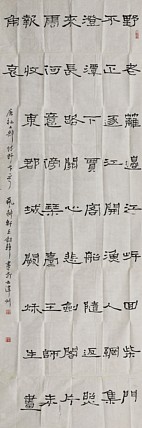 野老籬邊江岸回柴門
不正逐江開漁人網集
澄潭下賈客船隨返照
來長路關心悲劍閣片
雲何意傍琴臺王師未
報收東郡城闕秋生畫
角哀